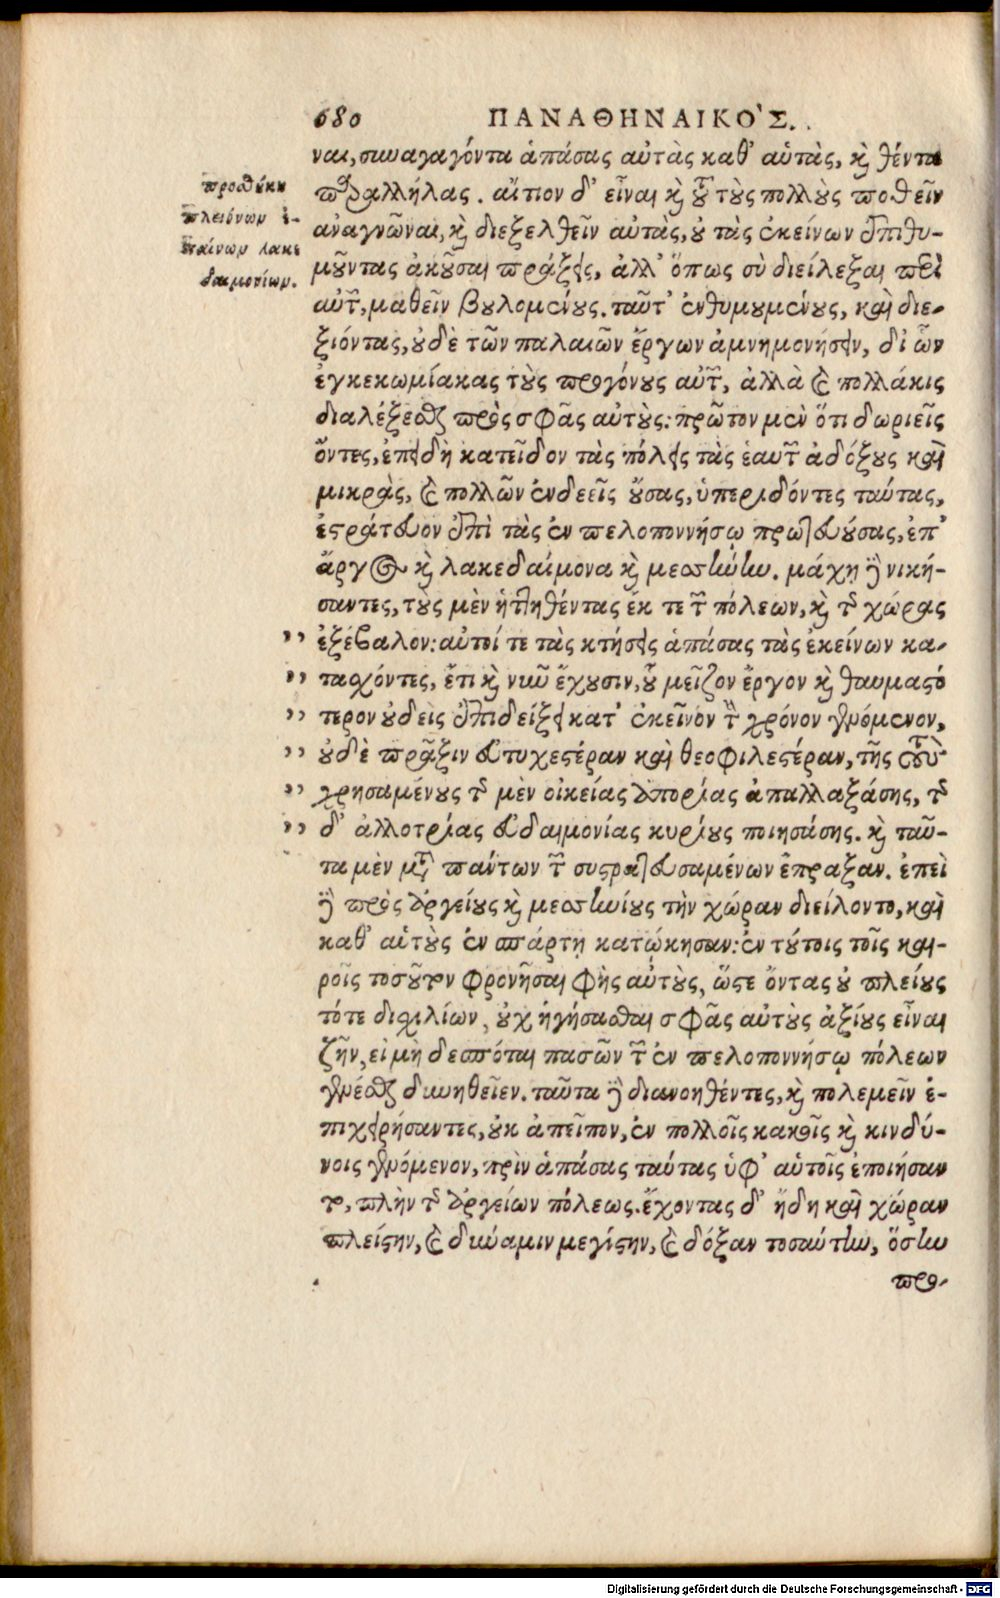 680 ΠΑΝΑΘΗΝΑΙΚΟ'Σ.
ναι, συναγαγόντα ἁπάσας αὐτὰς καθ' αὑτὰς, καὶ θέντα
παρ' ἀλλήλας. αἴτιον δ' εἶναι καὶ τοῦ τοὺς πολλοὺς ποθεῖν
ἀναγνῶναι, καὶ διεξελθεῖν αὐτὰς, οὐ τὰς ἐκείνων ἐπιθυ-
μοῦντας ἀκοῦσαι πράξεις, ἀλλ' ὅπως σὺ διείλεξαι περὶ
αὐτῶν, μαθεῖν βουλομένους. ταῦτ' ἐνθυμουμένους, καὶ διε-
ξιόντας, οὐδὲ τῶν παλαιῶν ἔργων ἀμνημονήσειν, δι' ὧν
ἐγκεκωμίακας τοὺς προγόνους αὐτῶν, ἀλλὰ καὶ πολλάκις
διαλέξεσθαι πρὸς σφᾶς αὐτούς: πρῶτον μὲν ὅτι δωριεῖς
ὄντες, ἐπειδὴ κατεῖδον τὰς πόλεις τὰς ἑαυτῶν ἀδόξους καὶ
μικρὰς, καὶ πολλῶν ἐνδεεῖς οὔσας, ὑπεριδόντες ταύτας,
ἐστράτευον ἐπὶ τὰς ἐν πελοποννήσῳ πρωτευούσας, ἐπ'
ἄργος καὶ λακεδαίμονα καὶ μεσσήνην. μάχῃ δὲ νική-
σαντες, τοὺς μὲν ἡττηθέντας ἔκ τε τῶν πόλεων, καὶ τῆς χώρας
ἐξέβαλον: αὐτοί τε τὰς κτήσεις ἁπάσας τὰς ἐκείνων κα-
τασχόντες, ἔτι καὶ νῦν ἔχουσιν, οὗ μεῖζον ἔργον καὶ θαυμαστό
τερον οὐδεὶς ἐπιδείξει κατ' ἐκεῖνον τὸν χρόνον γενόμενον,
οὐδὲ πρᾶξιν εὐτυχεστέραν καὶ θεοφιλεστέραν, τῆς τοὺς
χρησαμένους τῆς μὲν οἰκείας ἀπορίας ἀπαλλαξάσης, τῆς
δ' ἀλλοτρίας εὐδαιμονίας κυρίους ποιησάσης. καὶ ταῦ-
τα μὲν μετὰ πάντων τῶν συστρατευσαμένων ἔπραξαν. ἐπεὶ
δὲ πρὸς ἀργείους καὶ μεσσηνίους τὴν χώραν διείλοντο, καὶ
καθ' αὑτοὺς ἐν σπάρτῃ κατῴκησαν: ἐν τούτοις τοῖς και-
ροῖς τοσοῦτον φρονῆσαι φῂς αὐτοὺς, ὥστε ὄντας οὐ πλείους
τότε δισχιλίων, οὐχ ἡγήσασθαι σφᾶς αὐτοὺς ἀξίους εἶναι
ζῆν, εἰ μὴ δεσπόται πασῶν τῶν ἐν πελοποννήσῳ πόλεων
γενέσθαι δυνηθεῖεν. ταῦτα δὲ διανοηθέντες, καὶ πολεμεῖν ἐ-
πιχειρήσαντες, οὐκ ἀπεῖπον, ἐν πολλοῖς κακοῖς καὶ κινδύ-
νοις γενόμενον, πρὶν ἁπάσας ταύτας ὑφ' αὑτοῖς ἐποιήσαν
το, πλὴν τῆς ἀργείων πόλεως. ἔχοντας δ' ἤδη καὶ χώραν
πλείστην, καὶ δύναμιν μεγίστην, καὶ δόξαν τοσαύτην, ὅσην
προ-
προσθήκη
πλειόνων ἐ-
παίνων λακε
δαιμονίων.
Digitalisierung gefördert durch die Deutsche Forschungsgemeinschaft - DFG